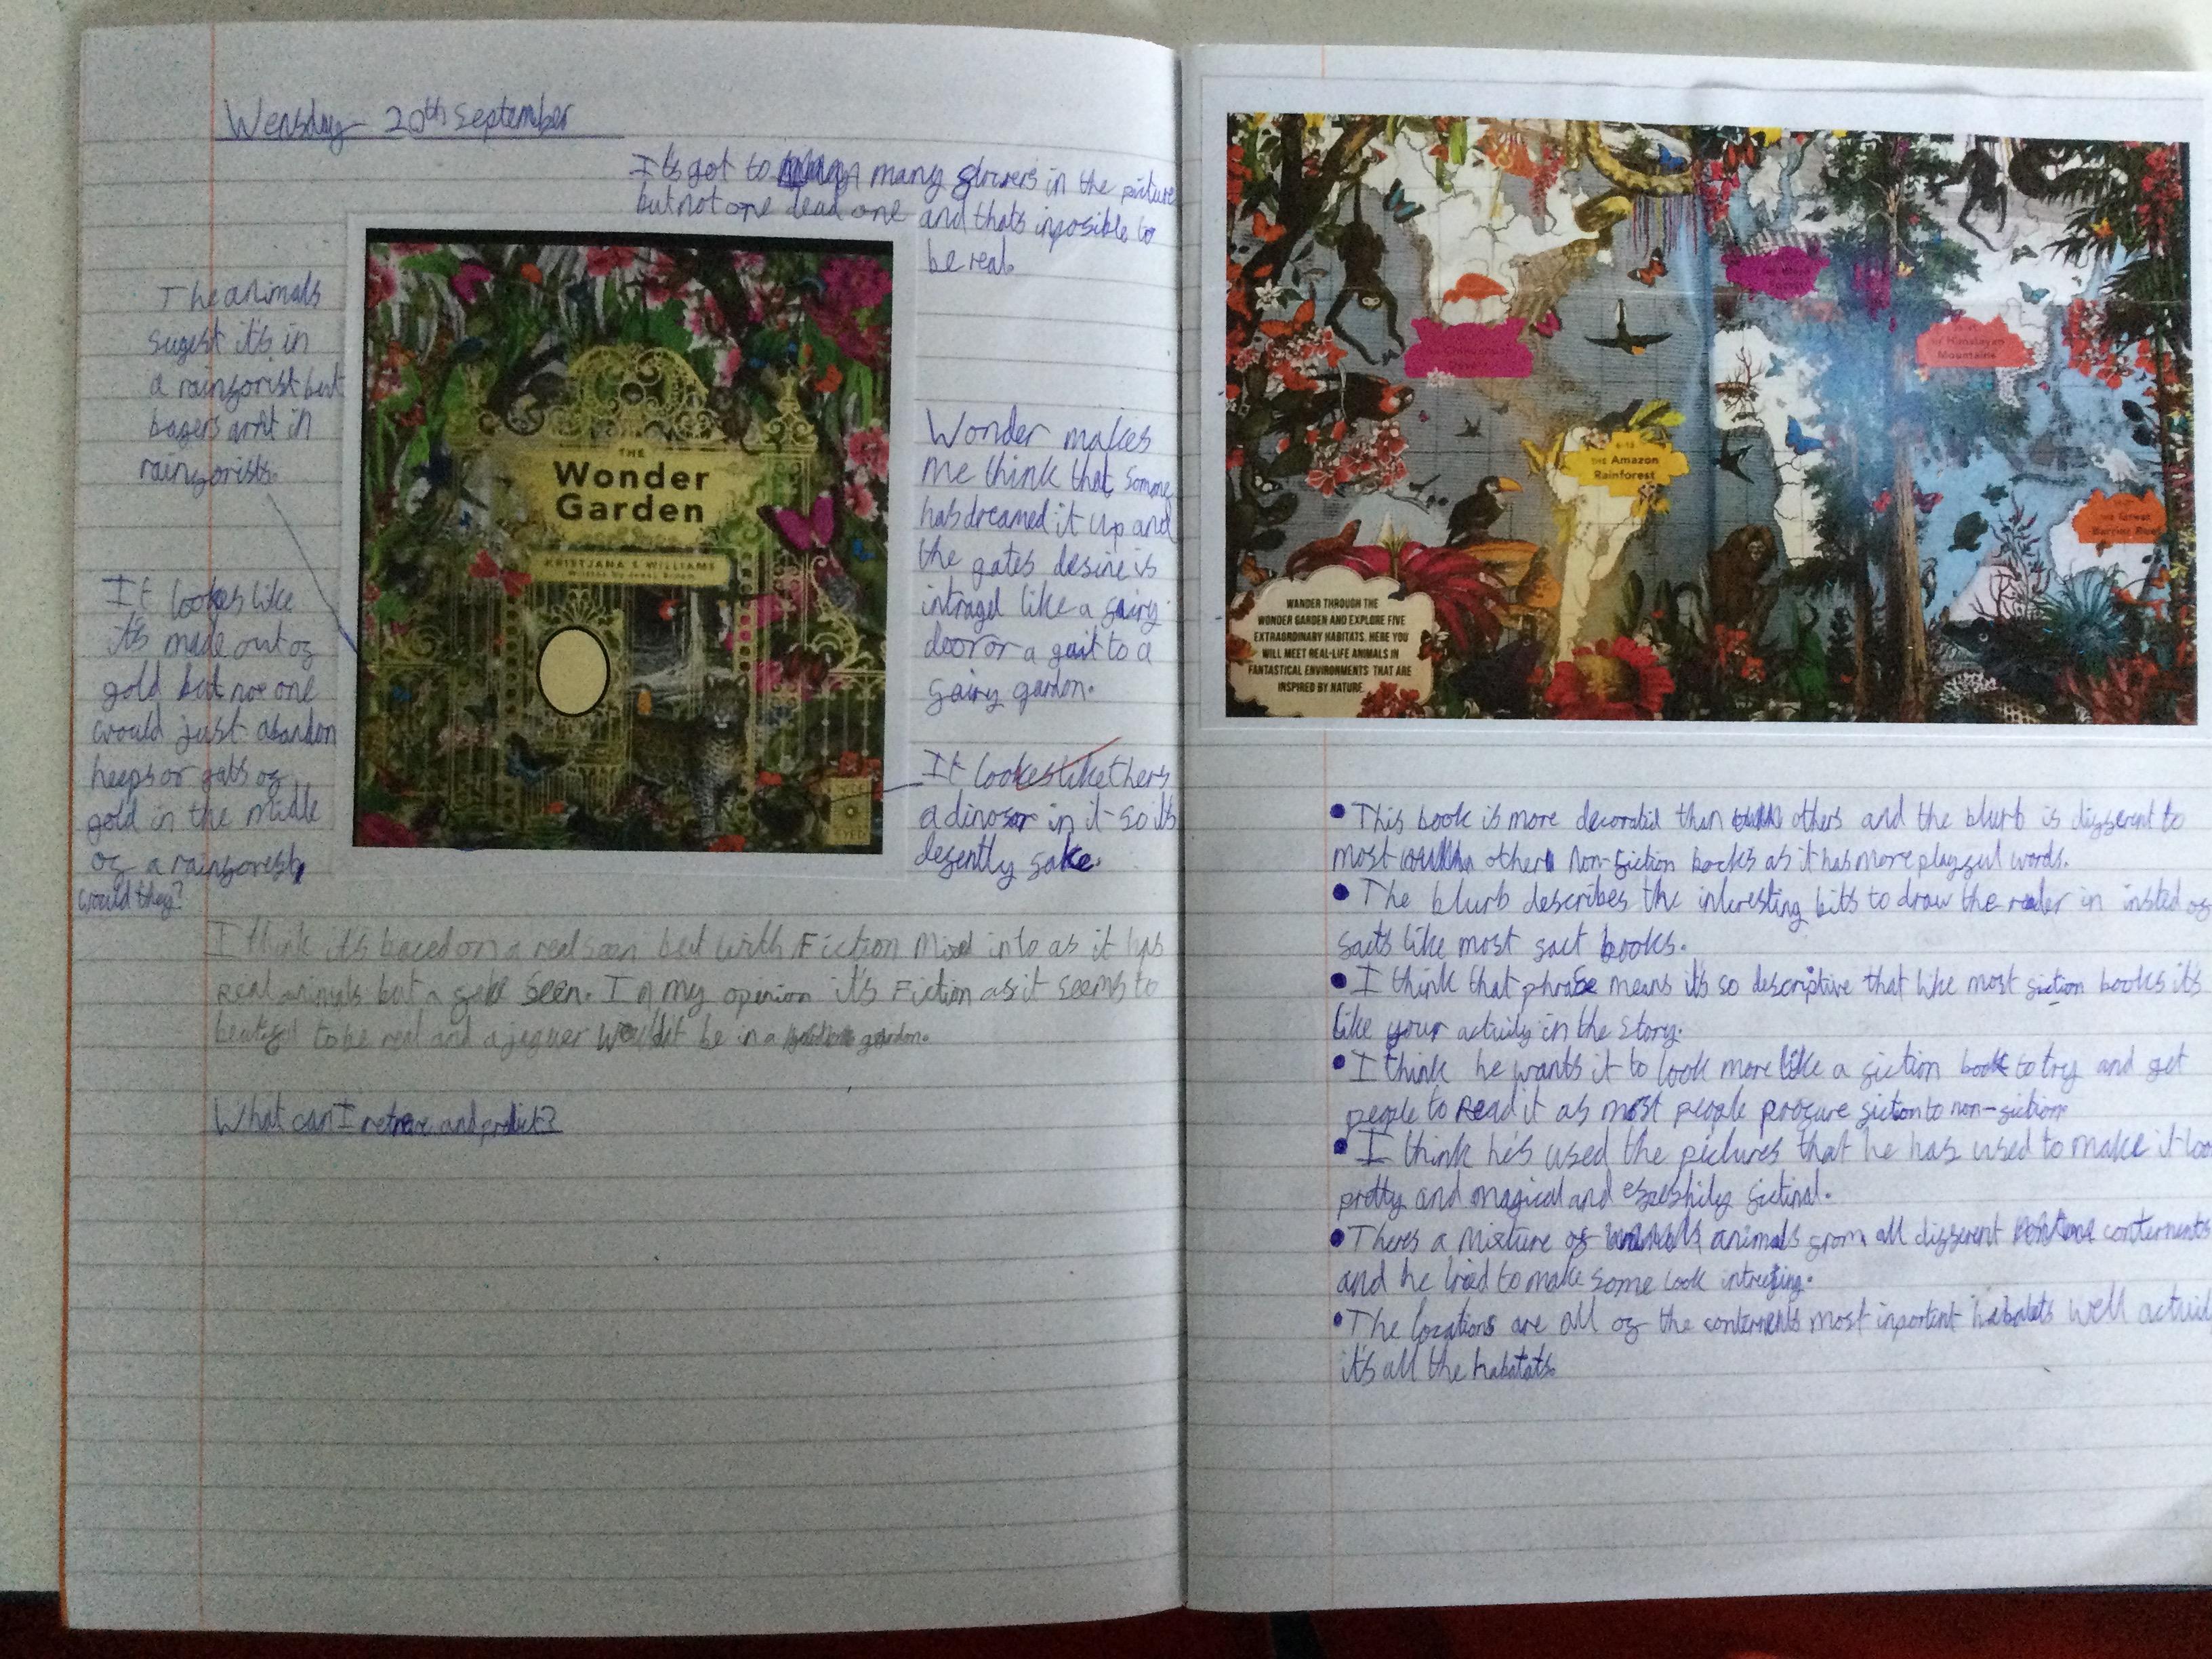 Wensday 20th September
It's got to many flowers in the picture
but not one dead one and thats inposible to
be real.
The animals
sugest it's in
a rainforist but
bagers arnt in
rainforists.
It lookes like
it's made out of
gold but not one
would just abandon
heeps or gats of
gold in the midle
of a rainforest,
would they?
THE
Wonder
Garden
KRISTJANA S WILLIAMS
Written by Jenny Broom
Wonder makes
me think that somone
has dreamed it up and
the gates desine is
intragel like a fairy
door or a gait to a
fairy gardon.
It lookes like thers
a dinosor in it so it's
defently fake.
I think it's baced on a real seen but with Fiction mixed into as it has
real animals but a fake seen. In my opinion it's Fiction as it seems to
beautiful to be real and a jaguer wouldn't be in a gardon.
What can I retreve and predict?
THE Amazon
Rainforest
Himalayan
Mountains
THE Great
Barrier Reef
WANDER THROUGH THE
WONDER GARDEN AND EXPLORE FIVE
EXTRAORDINARY HABITATS. HERE YOU
WILL MEET REAL-LIFE ANIMALS IN
FANTASTICAL ENVIRONMENTS THAT ARE
INSPIRED BY NATURE.
• This book is more decoratid than others and the blurb is different to
most other non-fiction books as it has more playful words.
• The blurb describes the interesting bits to draw the reader in insted of
facts like most fact books.
• I think that phrase means it's so descriptive that like most fiction books it's
like your actuily in the story.
• I think he wants it to look more like a fiction book to try and get
people to read it as most people procure fiction to non-fiction
• I think he's used the pictures that he has used to make it loo
pretty and magical and fictinal.
• Theres a mixture of animals from all different conternents
and he tried to make some look intreging.
• The locations are all of the conternents most inportent habatats well actuil
it's all the habatats.